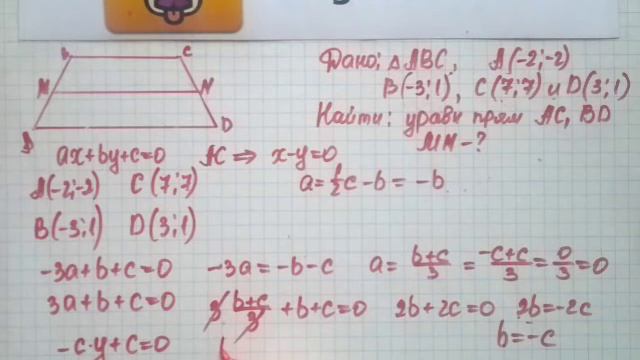 B C
M N
A D
Дано: △ABC, A(-2;-2)
B(-3;1), C(7;7) и D(3;1)
Найти: уравн прям AC, BD
MN-?
ax+by+c=0 AC ⇒ x-y=0
A(-2;-2) C(7;7) a=½c-b=-b
B(-3;1) D(3;1)
-3a+b+c=0 -3a=-b-c a=b+c/3=-c+c/3=0/3=0
3a+b+c=0 3 b+c/3 +b+c=0 2b+2c=0 2b=-2c
b=-c
-c·y+c=0